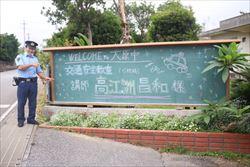 WELCOME to 大原中
交通安全教室
講師 高江洲昌和 様